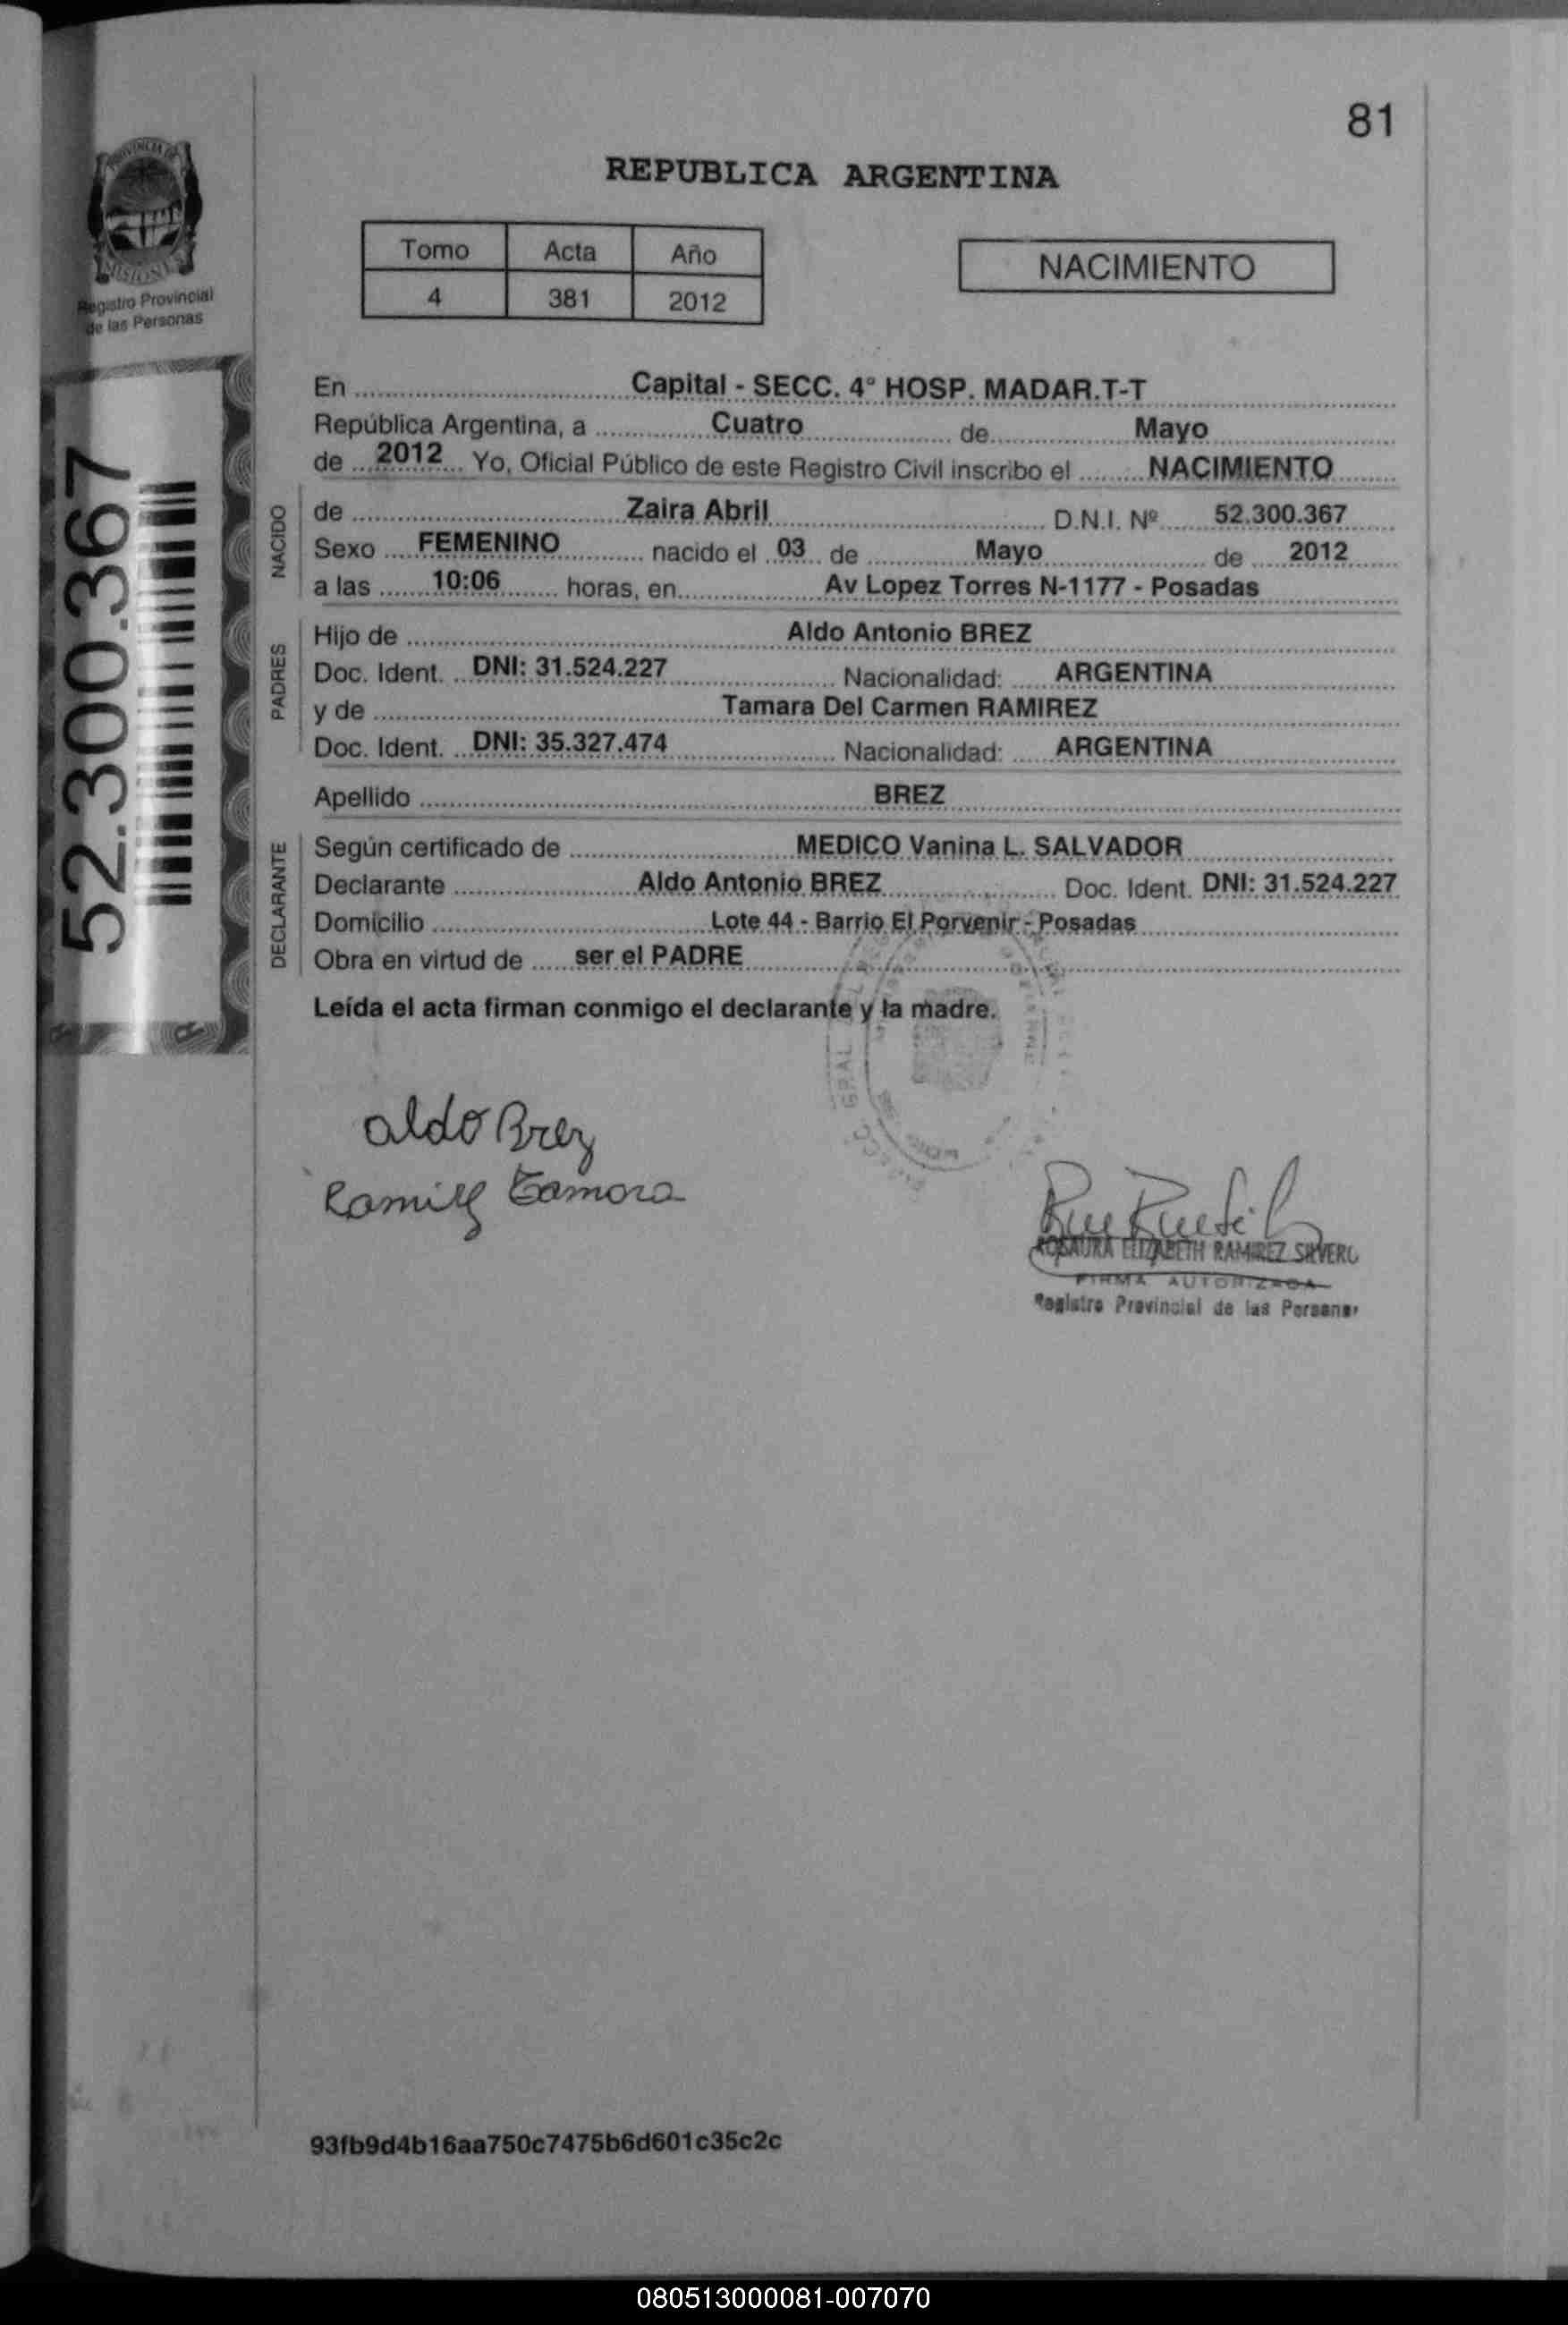 81
REPUBLICA ARGENTINA
PROVINCIA DE
MISIONES
Registro Provincial
de las Personas
Tomo Acta Año
4 381 2012
NACIMIENTO
52.300.367
En Capital - SECC. 4° HOSP. MADAR.T-T
República Argentina, a Cuatro de Mayo
de 2012 Yo, Oficial Público de este Registro Civil inscribo el NACIMIENTO
NACIDO
de Zaira Abril D.N.I. Nº 52.300.367
Sexo FEMENINO nacido el 03 de Mayo de 2012
a las 10:06 horas, en Av Lopez Torres N-1177 - Posadas
PADRES
Hijo de Aldo Antonio BREZ
Doc. Ident. DNI: 31.524.227 Nacionalidad: ARGENTINA
y de Tamara Del Carmen RAMIREZ
Doc. Ident. DNI: 35.327.474 Nacionalidad: ARGENTINA
Apellido BREZ
DECLARANTE
Según certificado de MEDICO Vanina L. SALVADOR
Declarante Aldo Antonio BREZ Doc. Ident. DNI: 31.524.227
Domicilio Lote 44 - Barrio El Porvenir - Posadas
Obra en virtud de ser el PADRE
Leída el acta firman conmigo el declarante y la madre.
aldo Brez
Ramirez Tamara
ROSAURA ELIZABETH RAMIREZ SILVERO
FIRMA AUTORIZADA
Registro Provincial de las Personas
93fb9d4b16aa750c7475b6d601c35c2c
080513000081-007070